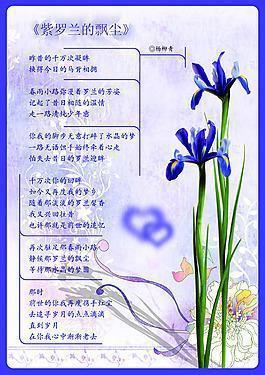 《紫罗兰的飘尘》
◎杨柳青
昨昔的千万次凝眸
换得今日的马背相拥
春雨小路你漫着罗兰的芳姿
记起了昔日相随的温情
走一路清纯少年恋
你我的脚步无意打碎了水晶的梦
一路无语但手始终牵着心走
怕失去昔日的罗兰迎眸
千万次你的回眸
如今又再度我的梦乡
随着那淡淡的罗兰馨香
我又兴回往昔
也许那就是前世的造忆
再次驻足那春雨小路
静候那罗兰的飘尘
等待那水晶的梦圆
那时
前世的你我再度携手红尘
去追寻岁月的点点滴滴
直到岁月
在你我心中渐渐老去